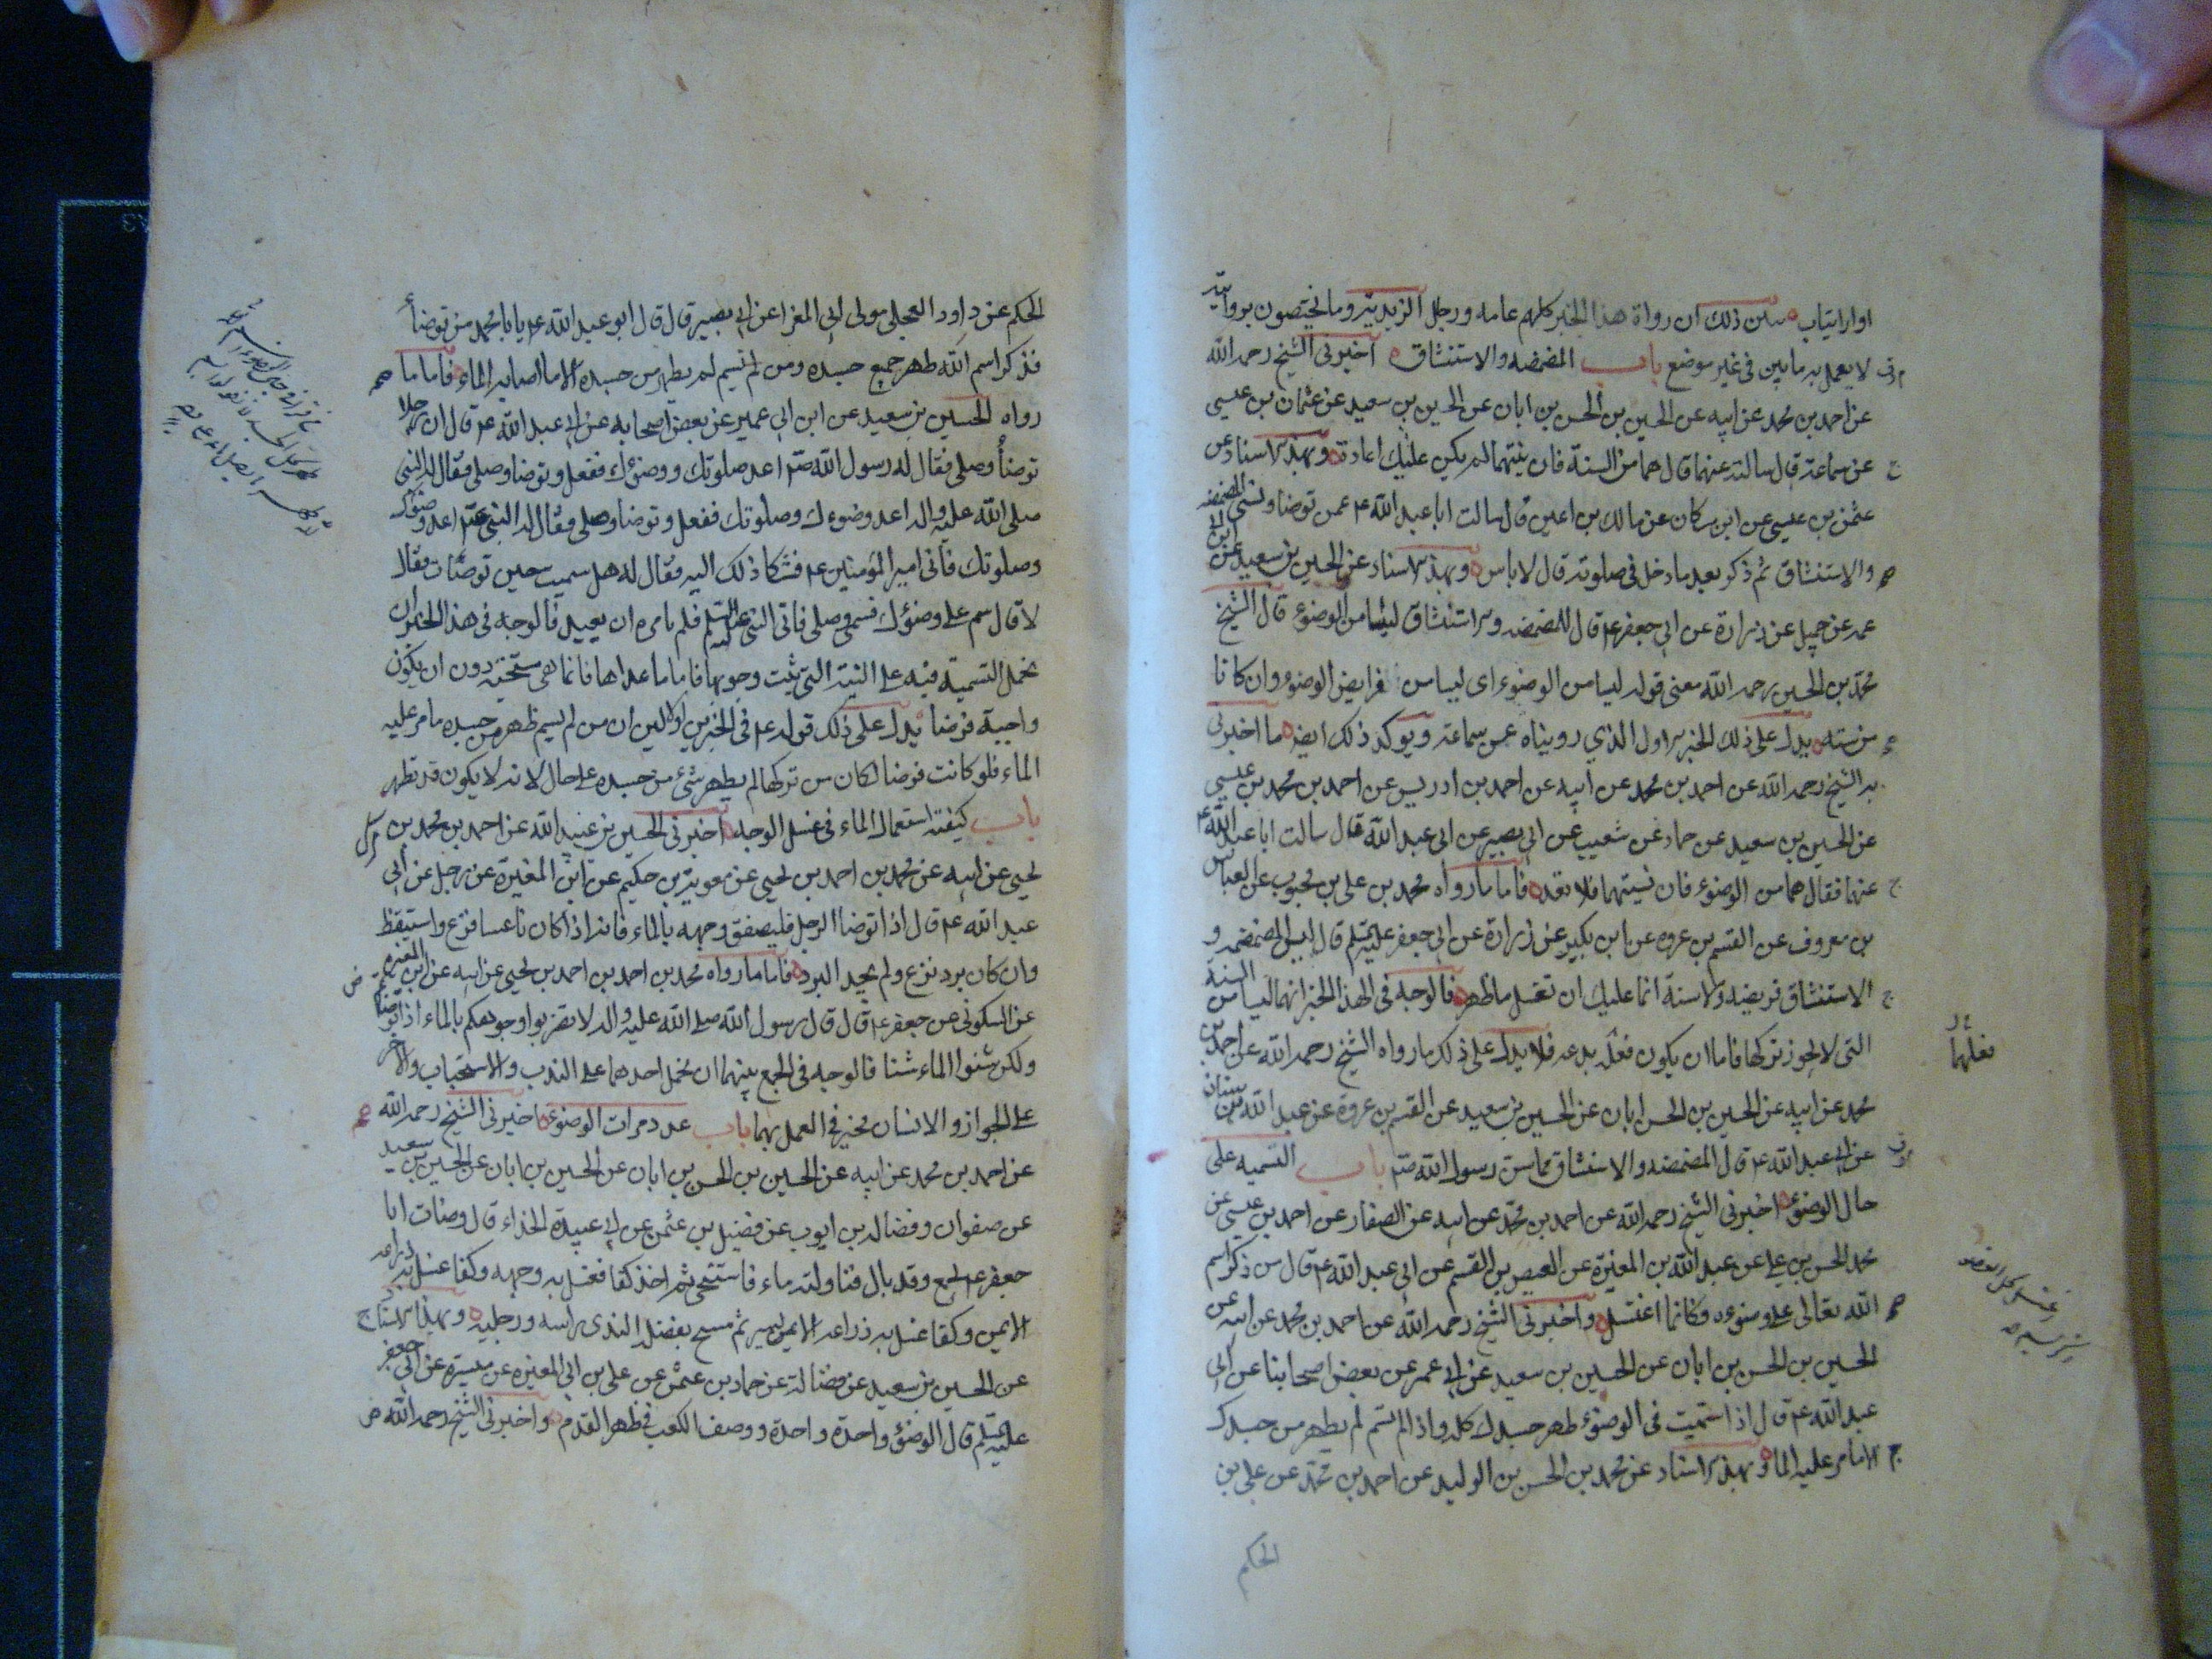 اوارايتاب سن ذلك ان رواة هذا الخبر كلهم عامه ورجال الزيدية وما يختصون بروايته
لا يعمل به مابين في غير موضع باب المضمضه والاستنشاق اخبرنى الشيخ رحمه الله
عن احمد بن محمد عن ابيه عن الحسين بن الحسن بن ابان عن الحسين بن سعيد عن عثمان بن عيسى
عن سماعة قال سالته عنهما قال هما من السنة فان نسيتهما لم يكن عليك اعادة وبهذا الاسناد عن
عثمن بن عيسى عن ابن مسكان عن مالك بن اعين قال سالت ابا عبد الله ع عمن توضا ونسى المضمضه
والاستنشاق ثم ذكر بعد ما دخل فى صلوته قال لا باس وبهذا الاسناد عن الحسين بن سعيد عن ابن ابى
عمير عن جميل عن زرارة عن ابى جعفر ع قال المضمضه والاستنشاق ليسا من الوضوء قال الشيخ
محمد بن الحسين رحمه الله معنى قوله ليسا من الوضوء اى ليسا من فرايض الوضوء وان كانا
من سننه يدل على ذلك الخبر الاول الذي رويناه عن سماعة ويوكد ذلك ايضا ما اخبرنى
به الشيخ رحمه الله عن احمد بن محمد عن ابيه عن احمد بن ادريس عن احمد بن محمد بن عيسى
عن الحسين بن سعيد عن حماد عن شعيب عن ابى بصير عن ابى عبد الله قال سالت ابا عبد الله ع
عنهما فقال هما من الوضوء فان نسيتهما فلا تعد فاما ما رواه محمد بن على بن محبوب عن العباس
بن معروف عن القسم بن عروه عن ابن بكير عن زرارة عن ابى جعفر عليه السلم قال ليس المضمضه و
الاستنشاق فريضه ولا سنة انما عليك ان تغسل ما ظهر فالوجه فى هذا الخبر انهما ليسا من السنة
التى لا يجوز تركها فاما ان يكون فعله بدعه فلا يدل على ذلك ما رواه الشيخ رحمه الله عن احمد بن
فعلهما
محمد عن ابيه عن الحسين بن الحسن ابان عن الحسين بن سعيد عن القسم بن عروة عن عبد الله بن سنان
عن ابى عبد الله ع قال المضمضه والاستنشاق مما سن رسول الله صلم باب التسميه على
حال الوضوء اخبرنى الشيخ رحمه الله عن احمد بن محمد عن ابيه عن الصفار عن احمد بن عيسى عن
محمد الحسن بن على عن عبد الله بن المغيرة عن العيص بن القسم عن ابى عبد الله ع قال من ذكر اسم
الله تعالى على وضوءه وكانما اغتسل واخبرنى الشيخ رحمه الله عن احمد بن محمد عن ابيه عن
الحسين بن الحسن بن ابان عن الحسين بن سعيد عن ابى عمير عن بعض اصحابنا عن ابى
عبد الله ع قال اذا سميت فى الوضوء طهر جسدك كله واذا لم تسم لم يطهر من جسدك
الا ما مر عليه الماء وبهذا الاسناد عن محمد بن الحسن بن الوليد عن احمد بن محمد عن على بن
الحكم
الحكم عن داود العجلى مولى ابى المغرا عن ابى بصير قال قال ابو عبد الله ع يا با محمد من توضأ
فذكر اسم الله طهر جميع جسده ومن لم يسم لم يطهر من جسده الا ما اصابه الماء فاما ما
رواه الحسين بن سعيد عن ابن ابى عمير عن بعض اصحابه عن ابى عبد الله ع قال ان رجلا
توضأ وصلى فقال له رسول الله صلم اعد صلوتك ووضوءك ففعل وتوضا وصلى فقال له النبى
صلى الله عليه واله اعد وضوءك وصلوتك ففعل وتوضا وصلى فقال له النبى صلم اعد وضوءك
وصلوتك فاتى امير المؤمنين ع فشكا ذلك اليه فقال له هل سميت حين توضات فقال
لا قال سم على وضوئك فسمى وصلى فاتى النبى عليه السلم فلم يامره ان يعيد فالوجه فى هذا الخبر ان
نحمل التسمية فيه على النية التى ثبت وجوبها فاما ما عداها فانما هى مستحبة دون ان يكون
واجبة فرضا يدل على ذلك قوله ع فى الخبرين الاولين ان من لم يسم طهر من جسده ما مر عليه
الماء فلو كانت فرضا لكان من تركها لم يطهر شئ من جسده على حال لانه لا يكون قد تطهر
باب كيفية استعمال الماء فى غسل الوجه اخبرنى الحسين بن عبيد الله عن احمد بن محمد بن
يحيى عن ابيه عن محمد بن احمد بن يحيى عن معوية بن حكيم عن ابن المغيرة عن رجل عن ابى
عبد الله ع قال اذا توضا الرجل فليصفق وجهه بالماء فانه اذا كان ناعسا فزع واستيقظ
وان كان برد فزع ولم يجد البرد فاما ما رواه محمد بن احمد بن احمد بن يحيى عن ابيه عن ابن المغيره
عن السكونى عن جعفر ع قال قال رسول الله صلى الله عليه واله لا تضربوا وجوهكم بالماء اذا توضاتم
ولكن شنوا الماء شنا فالوجه فى الجمع بينهما ان نحمل احدهما على الندب والاستحباب والاخر
على الجواز والانسان مخير فى العمل بهما باب عدد مرات الوضوء اخبرنى الشيخ رحمه الله
عن احمد بن محمد عن ابيه عن الحسين بن الحسن بن ابان عن الحسين بن ابان عن الحسين بن سعيد
عن صفوان وفضاله بن ايوب عن فضيل بن عثمن عن ابى عبيدة الحذاء قال وضات ابا
جعفر ع بجمع وقد بال فناولته ماء فاستنجى ثم اخذ كفا فغسل به وجهه وكفا غسل به ذراعه
الايمن وكفا غسل به ذراعه الايمن ليسير ثم مسح بفضل الندى راسه ورجليه وبهذا الاسناد
عن الحسين بن سعيد عن فضالة عن حماد بن عثمن عن على بن ابى المغيره عن ميسرة عن ابى جعفر
عليه السلم قال الوضوء واحدة واحدة ووصف الكعب فى ظهر القدم واخبرنى الشيخ رحمه الله